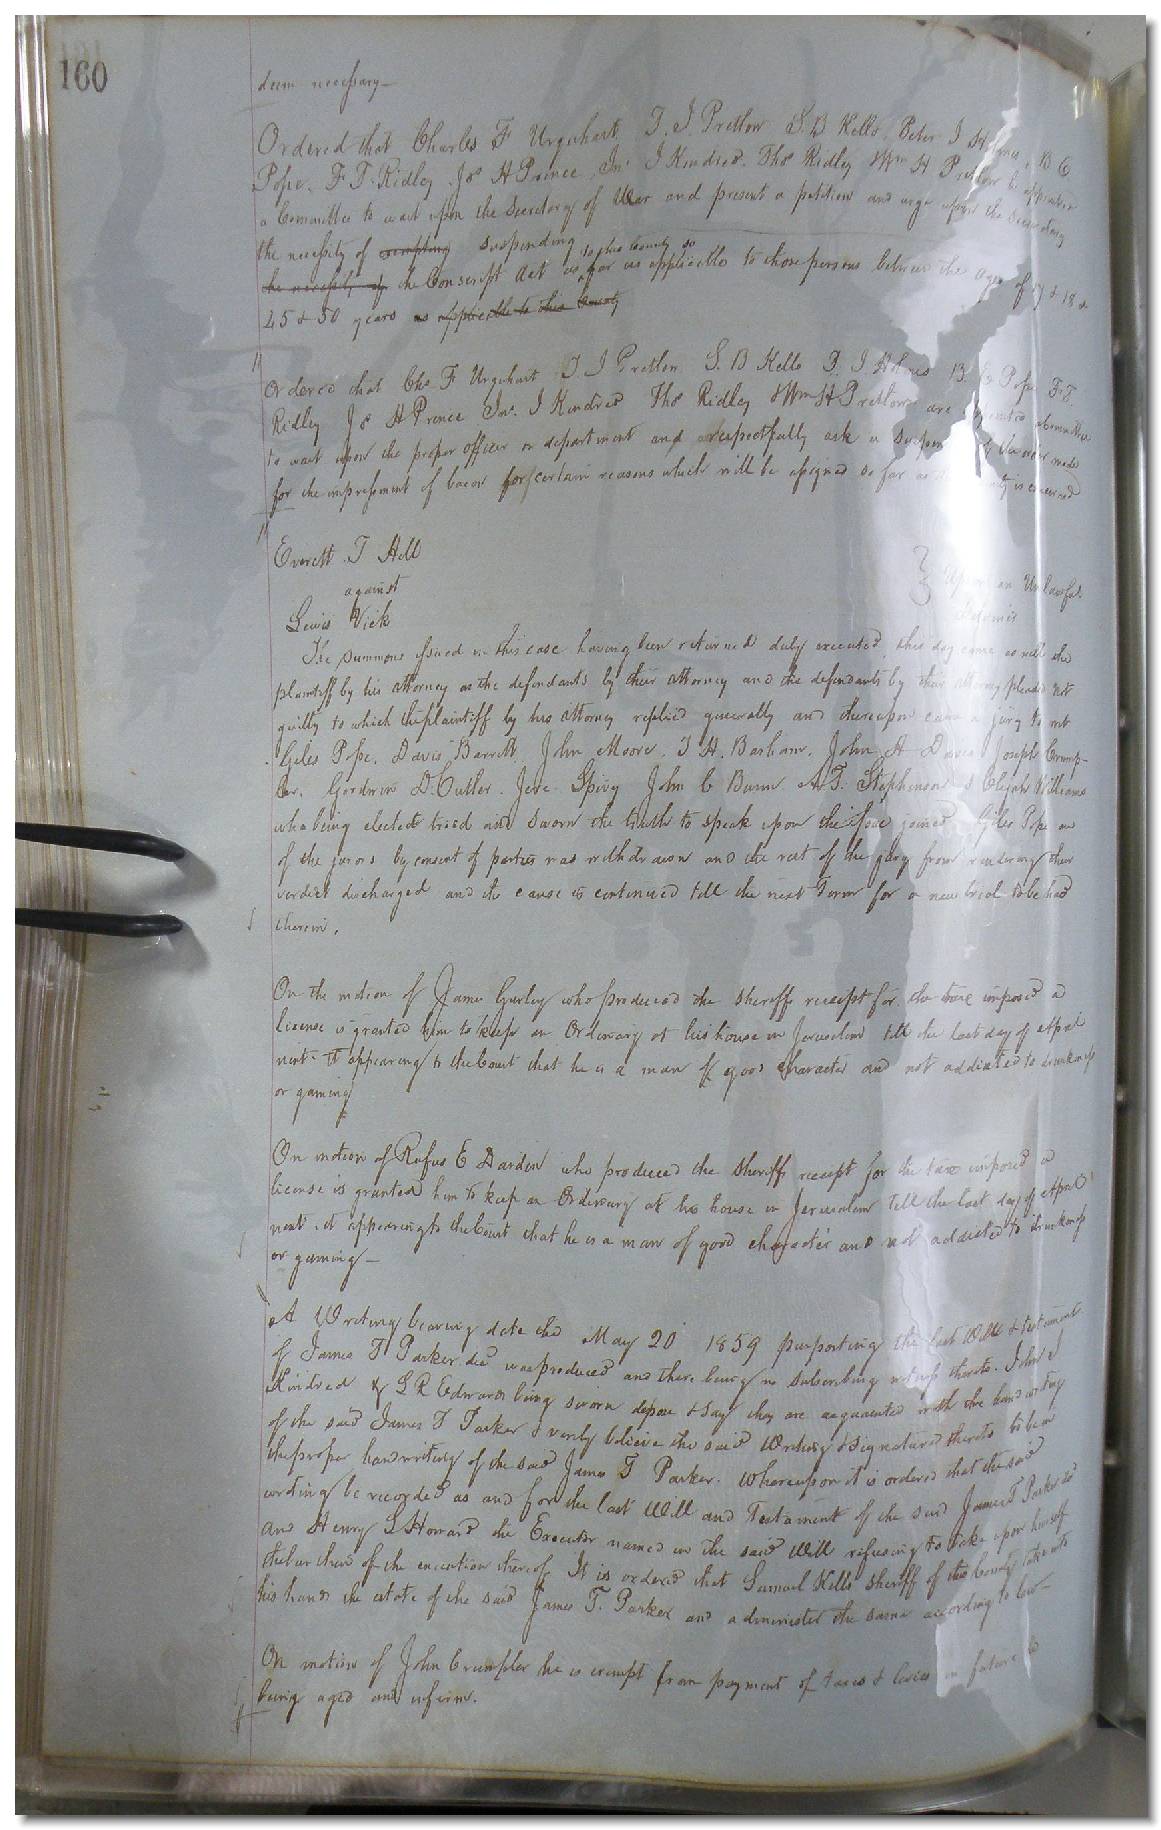 160
deem necessary—
Ordered that Charles F Urquhart T. J. Pretlow S. B Kello Peter J Holmes, B C
Pope, F. T. Ridley Jos H Prince Jno J Kindred Thos Ridley & Wm H Pretlow be appointed
a Committee to wait upon the Secretary of War and present a petition and urge upon the Secretary
the necessity of suspending
the necessity of the Conscript Act so far as applicable to this County so to those persons between the ages of 17 & 18 &
45 & 50 years as applicable to this County
Ordered that Chs. F Urquhart T J Pretlow S. B Kello P. J Holmes B. C Pope F. T.
Ridley Jos H Prince Jno. J Kindred Thos Ridley & Wm H Pretlow are appointed a Committee
to wait upon the proper officer or department and respectfully ask a the order made
for the impressment of bacon for certain reasons which will be assigned so far as is concerned
Everett T Hill
against
Lewis Vick
Upon an Unlawful
The summons issued in this case having been returned duly executed, this day came as well the
plaintiff by his attorney as the defendants by their attorney and the defendants by their attorney pleaded not
guilty to which the plaintiff by his attorney replied generally and thereupon came a jury to wit
Giles Pope, Davis Barrett, John Moore, T. H. Barham, John A Davis Joseph Crump-
ler, Goodwin D. Cutler, Jere Spivy John C Bunn A. T. Stephenson & Elijah Williams
who being elected tried and sworn the truth to speak upon the issue joined Giles Pope one
of the jurors by consent of parties was withdrawn and the rest of the jury from rendering their
verdict discharged and the cause is continued till the next Term for a new trial to be had
therein.
On the motion of James Gurley who produced the Sheriffs receipt for the taxe imposed a
license is granted him to keep an Ordinary at his house in Jerusalem till the last day of April
next - it appearing to the Court that he is a man of good character and not addicted to drunkeness
or gaming
On motion of Rufus E Darden who produced the Sheriffs receipt for the taxe imposed a
license is granted him to keep an Ordinary at his house in Jerusalem till the last day of April
next - it appearing to the Court that he is a man of good character and not addicted to drunkeness
or gaming—
A Writing bearing date the May 20 1859 purporting the last Will & testament
of James T Parker decd was produced and there being no subscribing witness thereto. John J
Kindred & L R Edwards being sworn depose & say they are acquainted with the hand writing
of the said James T Parker & verily believe the said Writing & signature thereto to be in
the proper handwriting of the said James T Parker. Whereupon it is ordered that the said
writing be recorded as and for the last Will and Testament of the said James T Parker decd
and Henry L Howard the Executor named in the said Will refusing to take upon himself
the burthen of the execution thereof It is ordered that Samuel Kello Sheriff of this County take into
his hands the estate of the said James T. Parker and administer the same according to law—
On motion of John Crumpler he is exempt from payment of taxes & levies in future he
being aged and infirm.